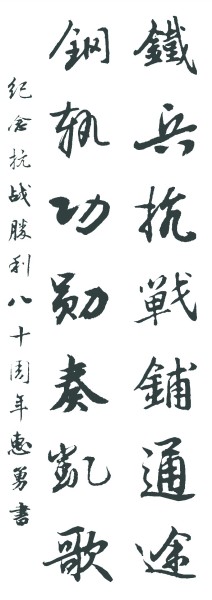 鐵兵抗戰鋪通途
鋼軌功勛奏凱歌
纪念抗战勝利八十周年惠勇書